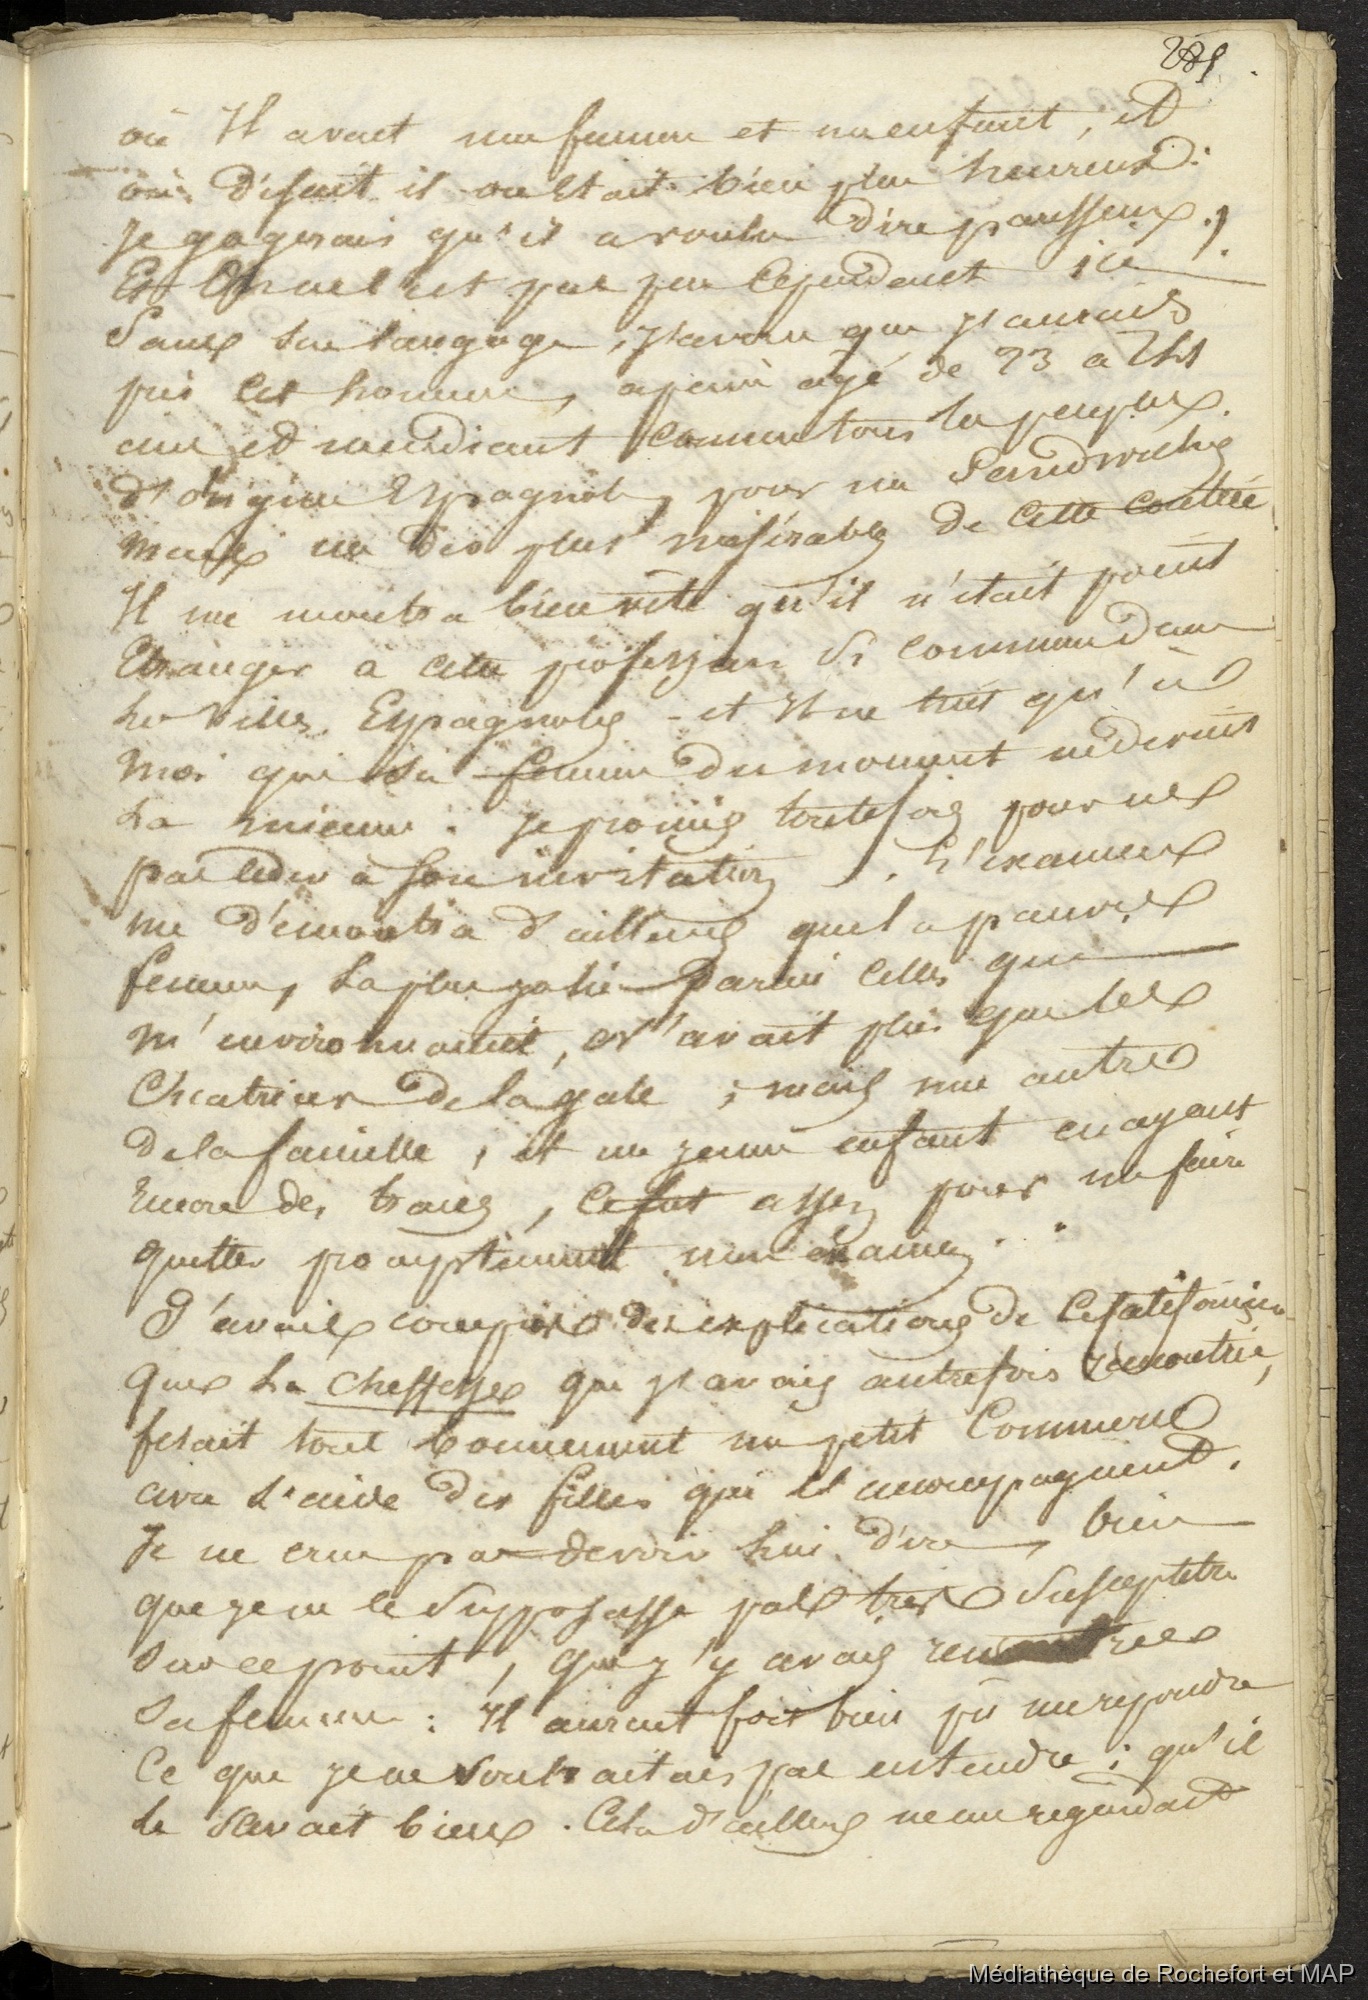 281
où Il avait une femme et un enfant, et
où disait il on était bien plus heureux.
Je gagerais qu'il a voulu dire paresseux.,
Et On ne l'est pas peu cependant ici.
Sans son langage, J'avoue que J'aurais
pris cet homme, a peine agé de 23 a 24
ans et mendiant comme tous les peuples
d'origine Espagnole, pour un Sandwichs
mais un des plus misérables de cette contrée
Il me montra bien vite qu'il n'était point
Etranger a cette profession si commune dans
les Villes Espagnoles - et Il ne tint qu'à
moi que sa femme du moment ne devint
la mienne. Je promis toutefois pour ne
pas céder à son invitation . L'examen
me démontra d'ailleurs que la pauvre
femme, la plus jolie parmi celles qui
m'environnaient, n'avait plus que les
Cicatrices de la gale ; mais une autre
de la famille, et un jeune enfant en ayant
encore des traces, ce fut assez pour me faire
quitter promptement mon examen.
J'avais compris des explications de ce Californien
que la cheffesse que J'avais autrefois rencontrée,
fesait tout bonnement un petit Commerce
avec l'aide des filles qui l'accompagnent.
Je ne crus pas devoir lui dire, bien
que je ne le supposasse pas très susceptible
sur ce point, que j'y avais rencontrée
sa femme : Il aurait fort bien pû me repondre
ce que je ne souhaitais pas entendre ; qu'il
le savait bien. Cela d'ailleurs ne me regardait
Médiathèque de Rochefort et MAP